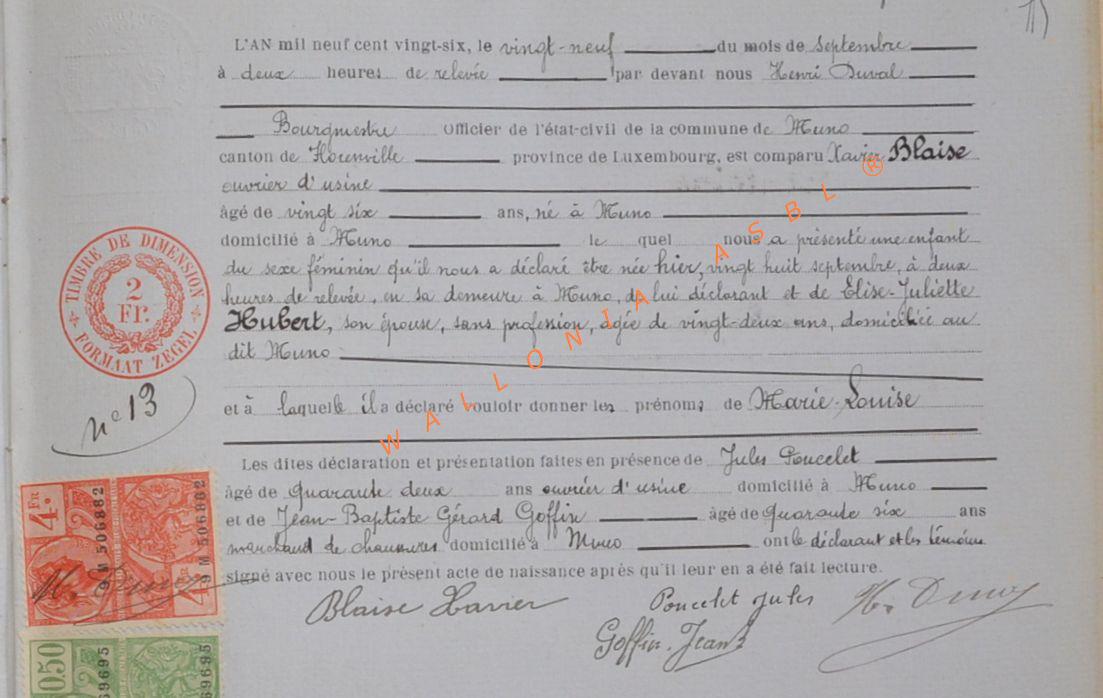 L'AN mil neuf cent vingt-six, le vingt-neuf du mois de Septembre
à deux heures de relevée par devant nous Henri Duval
Bourgmestre Officier de l'état-civil de la commune de Muno
canton de Florenville province de Luxembourg, est comparu Xavier Blaise
ouvrier d'usine
âgé de vingt six ans, né à Muno
domicilié à Muno le quel nous a présenté une enfant
du sexe féminin qu'il nous a déclaré être née hier, vingt huit septembre, à deux
heures de relevée, en sa demeure à Muno, de lui déclarant et de Elise-Juliette
Hubert, son épouse, sans profession, agée de vingt-deux ans, domiciliée au
dit Muno
et à laquelle il a déclaré vouloir donner les prénoms de Marie-Louise
Les dites déclaration et présentation faites en présence de Jules Poncelet
âgé de Quarante deux ans ouvrier d'usine domicilié à Muno
et de Jean-Baptiste Gérard Goffin âgé de Quarante six ans
marchand de chaussures domicilié à Muno ont le déclarant et les témoins
signé avec nous le présent acte de naissance après qu'il leur en a été fait lecture.
Blaise Xavier Poncelet Jules
Goffin Jean
TIMBRE DE DIMENSION
2
Fr.
FORMAAT ZEGEL
n° 13
4 FR
9 M 506882
9 M 506882
4 FR
0.50
69695
69695
WALLONIA ASBL ®